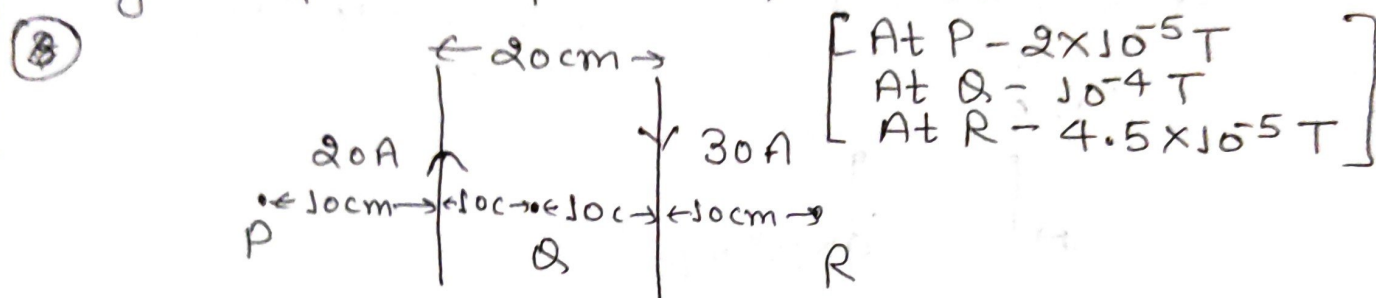 8
20cm
[ At P - 2×10⁻⁵ T
At Q - 10⁻⁴ T
At R - 4.5×10⁻⁵ T ]
20A 30A
10cm 10c 10c 10cm
P Q R